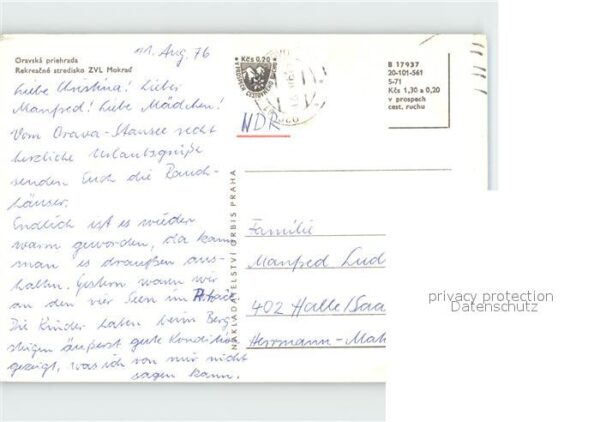 21. Aug. 76
Oravská priehrada
Rekreačné stredisko ZVL Mokraď
Liebe Christina! Lieber
Manfred! Liebe Mädchen!
Vom Orava-Stausee recht
herzliche Urlaubsgrüße
senden Euch die Rauch-
häuser.
Endlich ist es wieder
warm geworden, da kann
man es draußen aus-
halten. Gestern waren wir
an den vier Seen im
Die Kinder haben beim Berg-
steigen äußerst gute Kondition
gezeigt, was ich von mir nicht
sagen kann.
NAKLADATELSTVÍ ORBIS PRAHA
Kčs 0,20
B 17937
20-101-561
5-71
Kčs 1,30 a 0,20
v prospech
cest. ruchu
Familie
Manfred Lud
402 Halle/Saa
Herrmann-Mat
privacy protection
Datenschutz